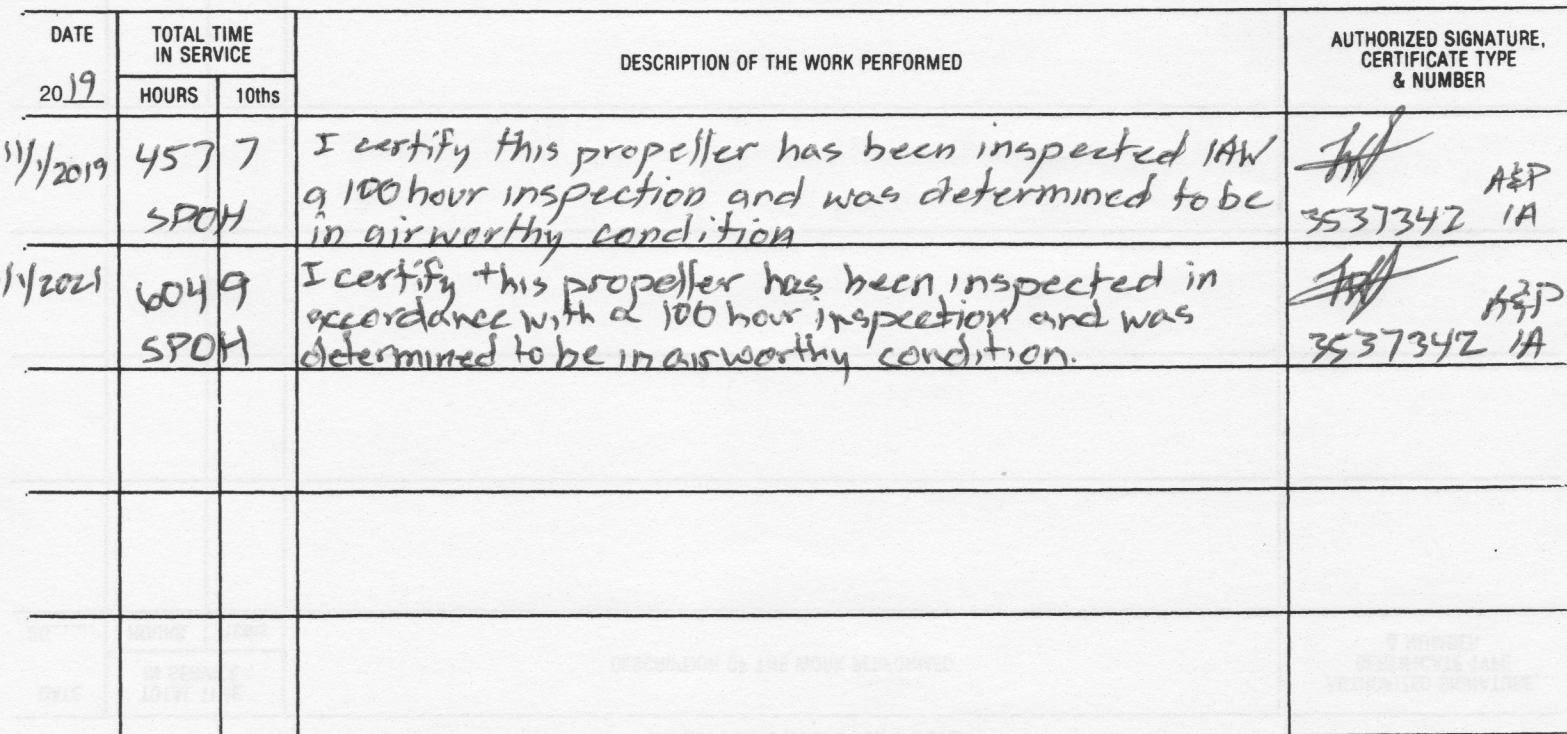 DATE
TOTAL TIME
IN SERVICE
DESCRIPTION OF THE WORK PERFORMED
AUTHORIZED SIGNATURE,
CERTIFICATE TYPE
& NUMBER
2019
HOURS
10ths
11/1/2019
457 7
SPOH
I certify this propeller has been inspected IAW
a 100 hour inspection and was determined to be
in airworthy condition
A&P
3537342 IA
1/1/2021
604 9
SPOH
I certify this propeller has been inspected in
accordance with a 100 hour inspection and was
determined to be in airworthy condition.
A&P
3537342 IA